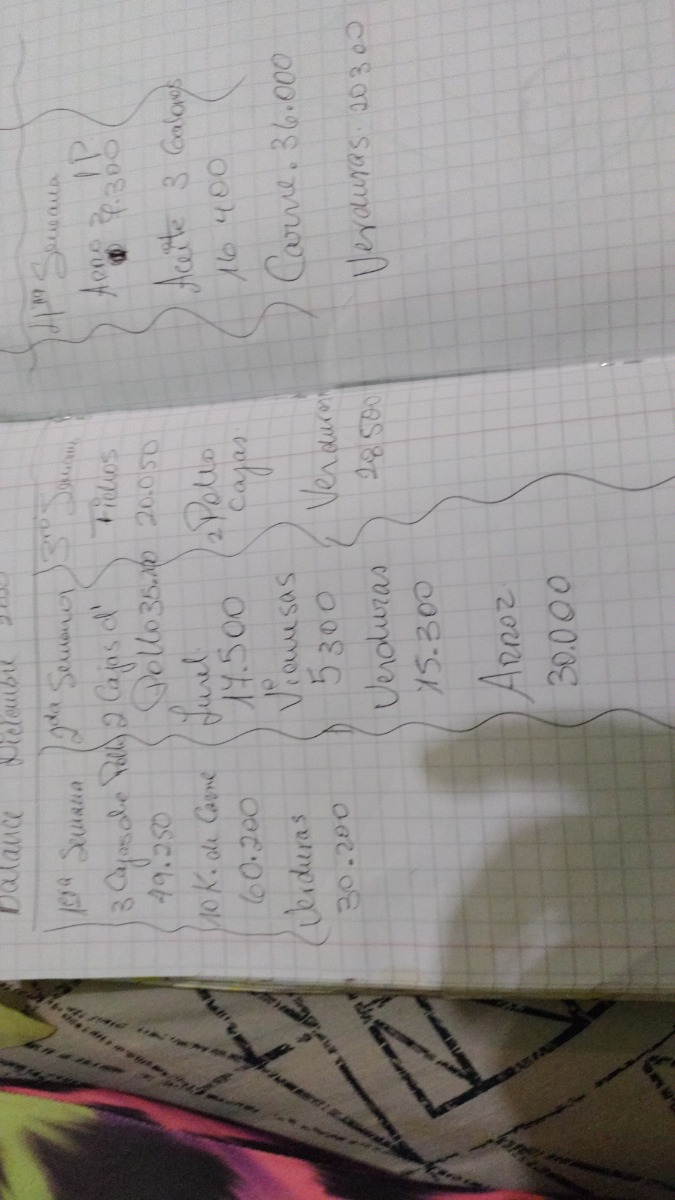 Balance Diciembre
1era Semana
3 Cajas de Pollo
49.250
10 K. de Carne
60.200
Verduras
30.200
2da Semana
2 Cajas d'
Pollo
Jurel
17.500
Vianesas
5300
Verduras
15.300
Arroz
30.000
3ra Semana
Fideos
20.050
2 Pollo
Cajas
Verduras
28.500
4ta Semana
1P
Aceite 3 Galones
16 400
Carne. 36.000
Verduras. 20300